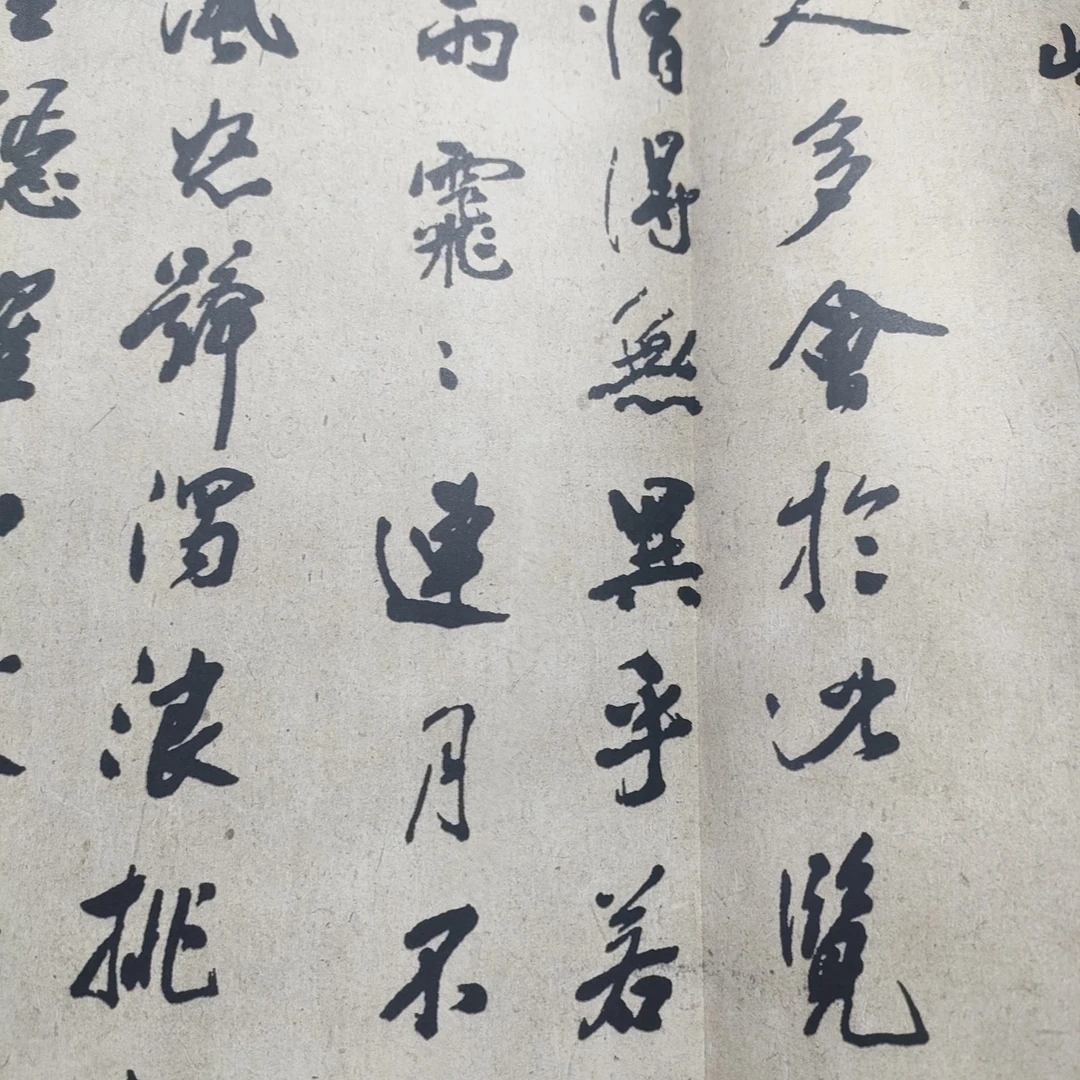 人多會於此覽
情得無異乎若
雨霏霏連月不
風怒號濁浪排
隱曜